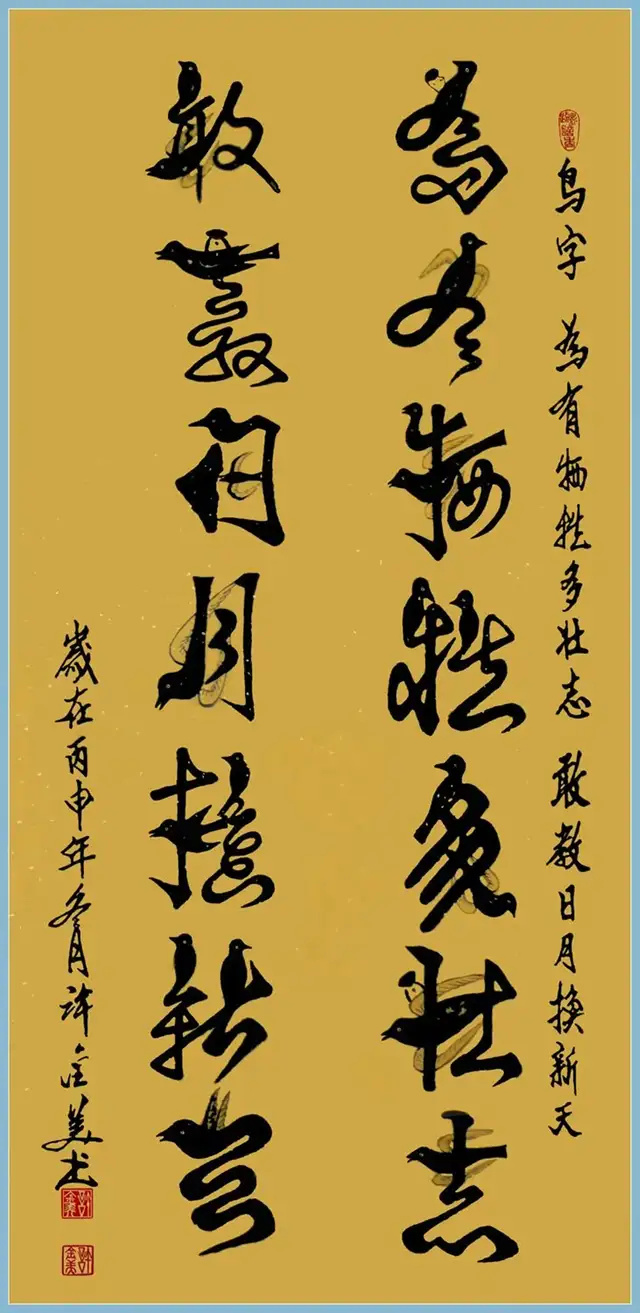 鸟字 為有牺牲多壮志 敢教日月换新天
為有牺牲多壮志
敢教日月换新天
歲在丙申年冬月许金美书